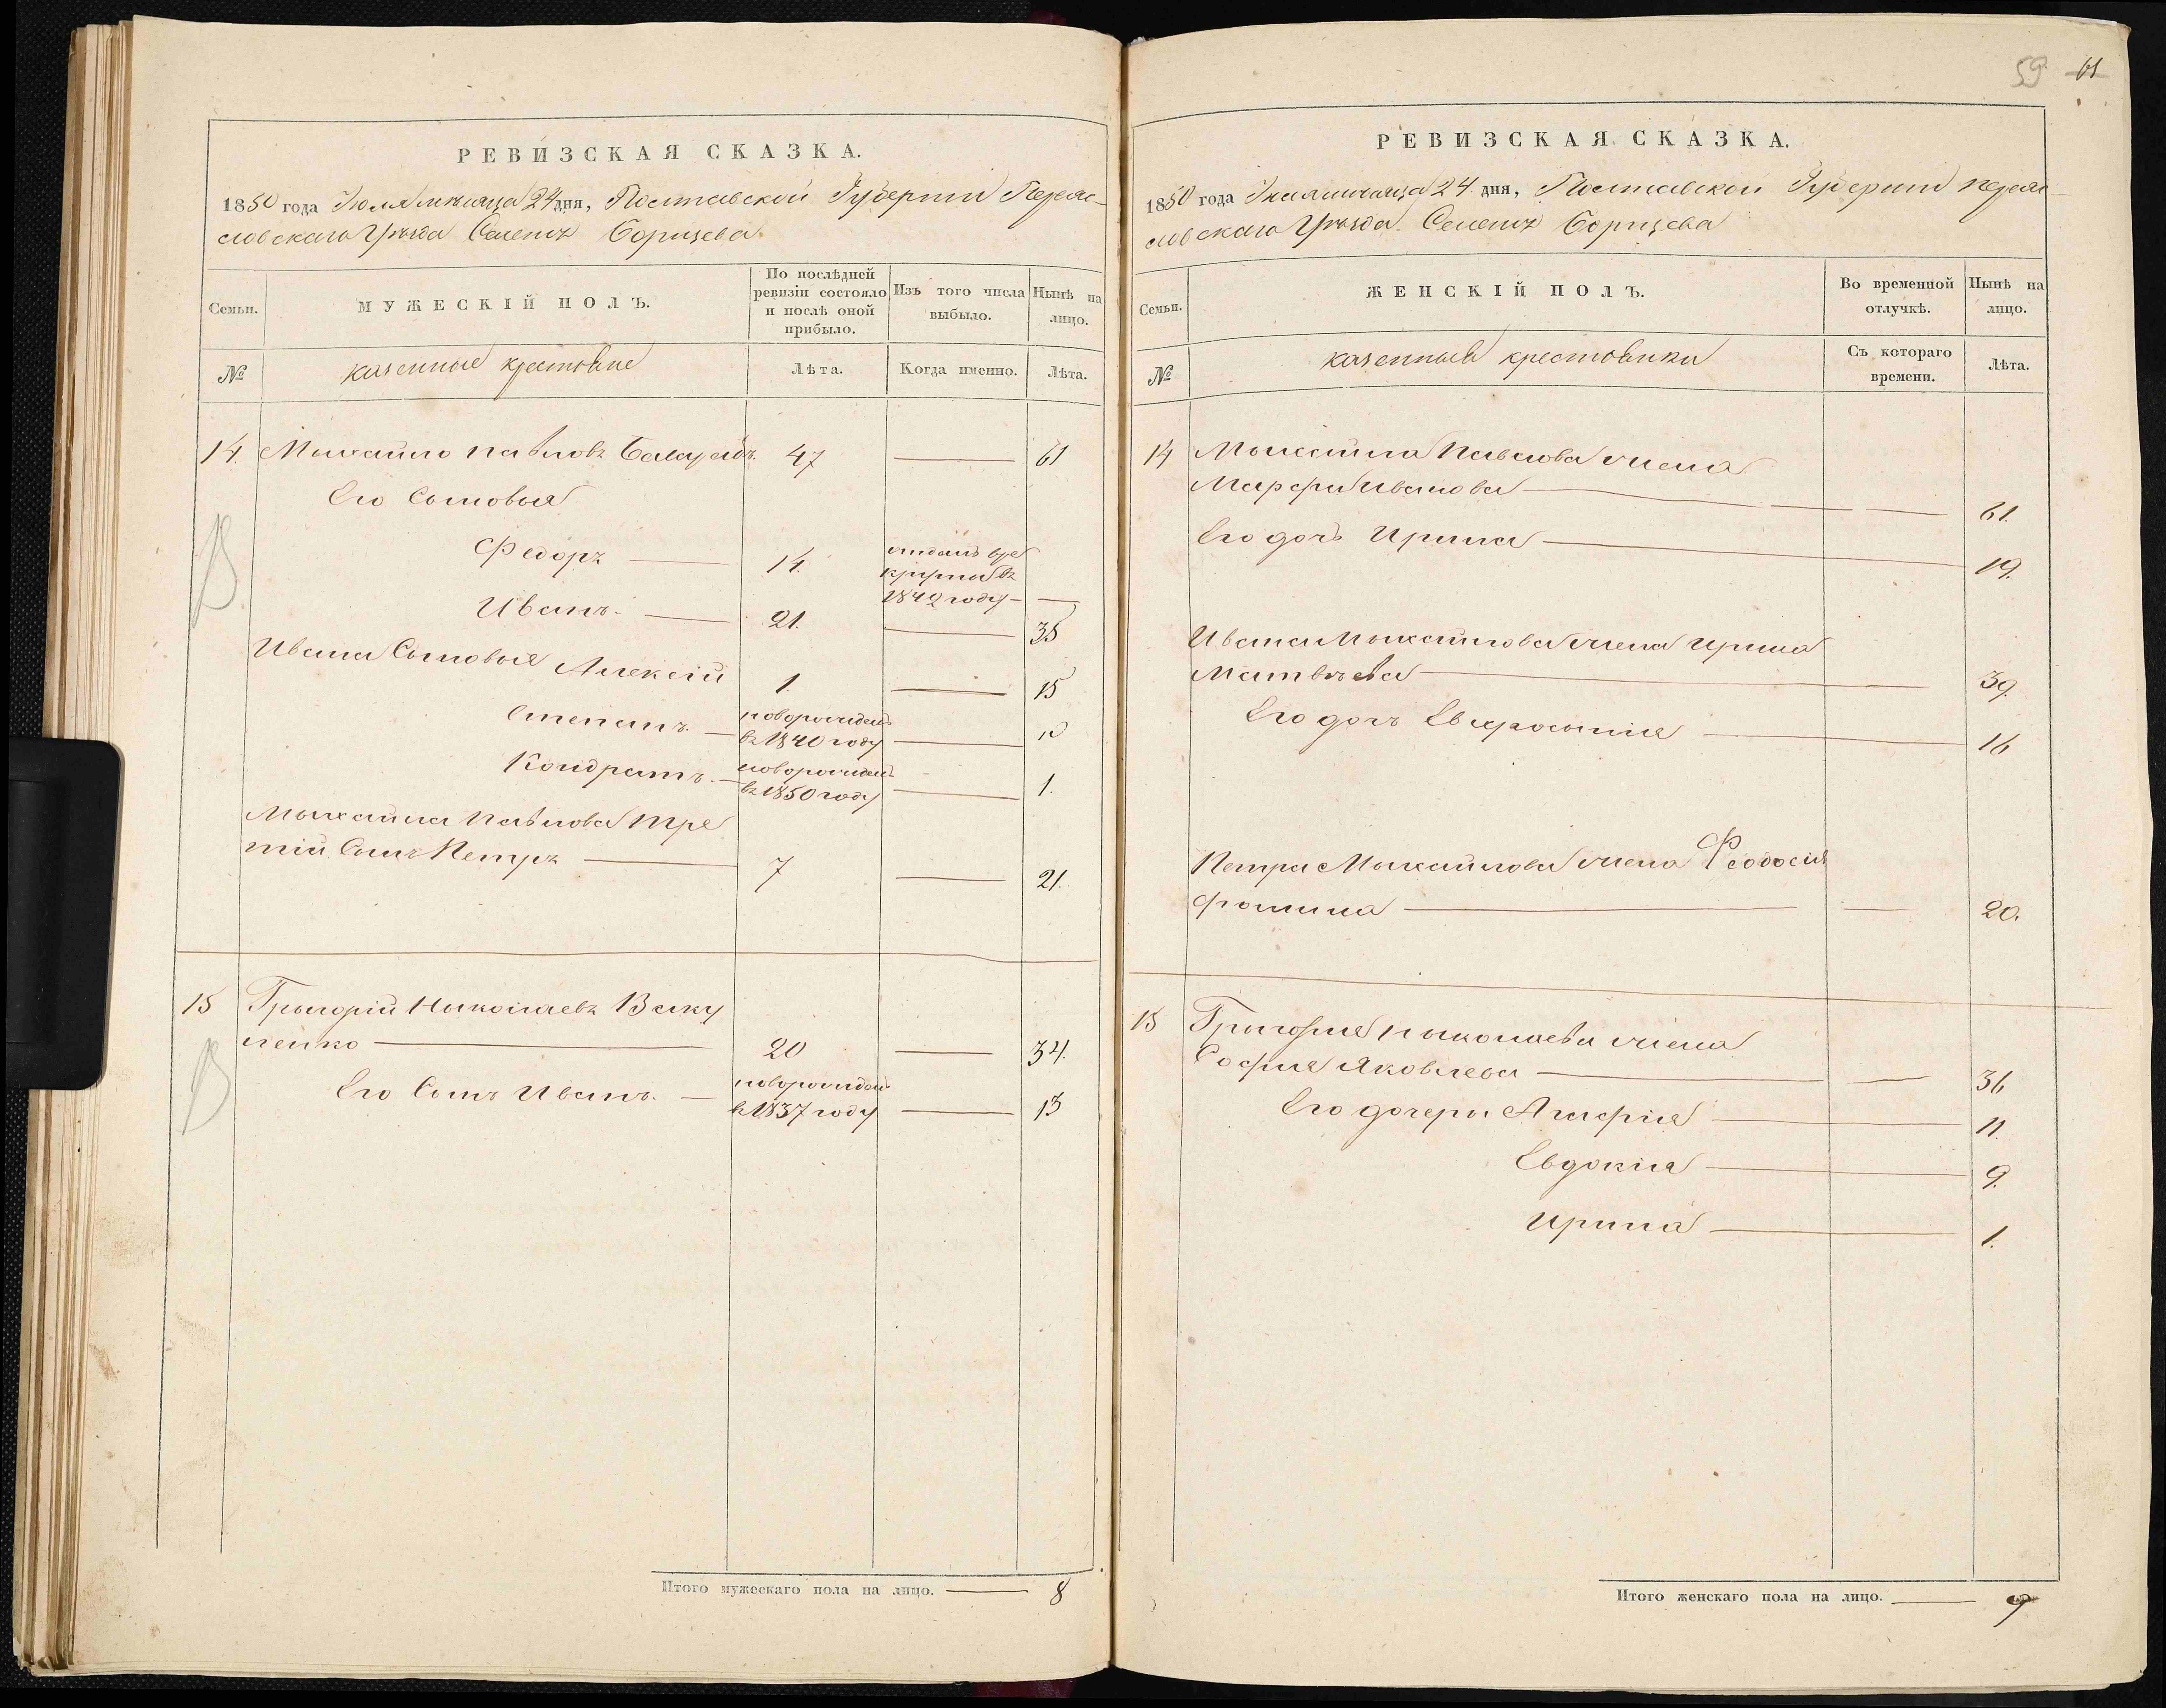 59 61
РЕВИЗСКАЯ СКАЗКА.
1850 года Іюля мѣсяца 24 дня, Полтавской Губерніи Переяс-
словскаго Уѣзда Селенія Борщева
Семьи.
МУЖЕСКІЙ ПОЛЪ.
По послѣдней ревизіи состояло и послѣ оной прибыло.
Изъ того числа выбыло.
Нынѣ на лицо.
№
казенные крестьяне
Лѣта.
Когда именно.
Лѣта.
14. Мыхайло Павловъ 47 — 61
Его Сыновья
Федоръ — 14. отданъ вре
круты въ
1842 году — —
Иванъ. — 21. — 35
Ивана Сыновья Алексій 1 — 15
Степанъ. — новорожден
въ 1840 году — 10
Кондратъ. — новорожден
въ 1850 году — 1.
Мыхайла Павлова тре
тій Сынъ Петръ — 7 — 21.
15 Грыгорій Ныколаевъ Ваку
ленко — 20 — 34.
Его Сынъ Иванъ. — новорожден
въ 1837 году — 13
Итого мужескаго пола на лицо. — 8
РЕВИЗСКАЯ СКАЗКА.
1850 года Іюля мѣсяца 24 дня, Полтавской Губерніи Переяс-
словскаго Уѣзда Селенія Борщева
Семьи.
ЖЕНСКІЙ ПОЛЪ.
Во временной отлучкѣ.
Нынѣ на лицо.
№
казенныя крестьянки
Съ котораго времени.
Лѣта.
14 Мыхайла Павлова жена
Марфа Иванова — — 61.
Его дочь Ирина — 19.
Ивана Мыхайлова жена Ирина
Матвѣева — 39.
Его дочь Евфросинія — 16
Петра Мыхайлова жена Феодосія
Фомина — — 20.
15 Грыгорія Ныколаева жена
Софія Яковлева — — 36
Его дочери Агафія — 11.
Евдокія — 9.
Ирина — 1.
Итого женскаго пола на лицо. — 9